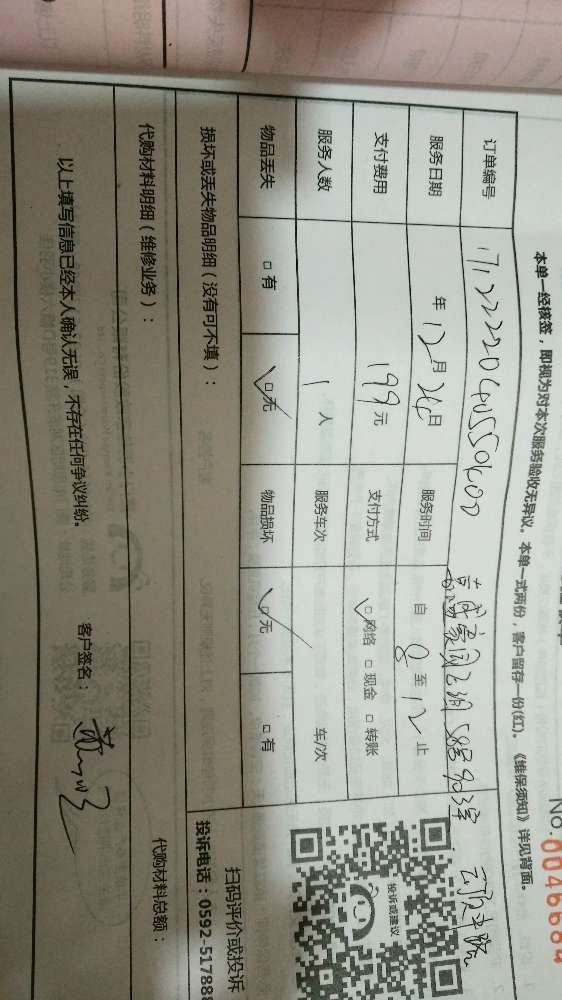 No.0046684
本单一经核签，即视为对本次服务验收无异议。本单一式两份，客户留存一份(红)。《维保须知》详见背面。
订单编号
服务日期 年 12月24日 服务时间 自 8 至 12 止
支付费用 199元 支付方式 □网络 □现金 □转账
服务人数 1 人 服务车次 车/次
物品丢失 □有 □无 物品损坏 □无 □有
损坏或丢失物品明细（没有可不填）：
投诉或建议
扫码评价或投诉
投诉电话：0592-517888
代购材料明细（维修业务）：
代购材料总额：
以上填写信息已经本人确认无误，不存在任何争议纠纷。
客户签名：